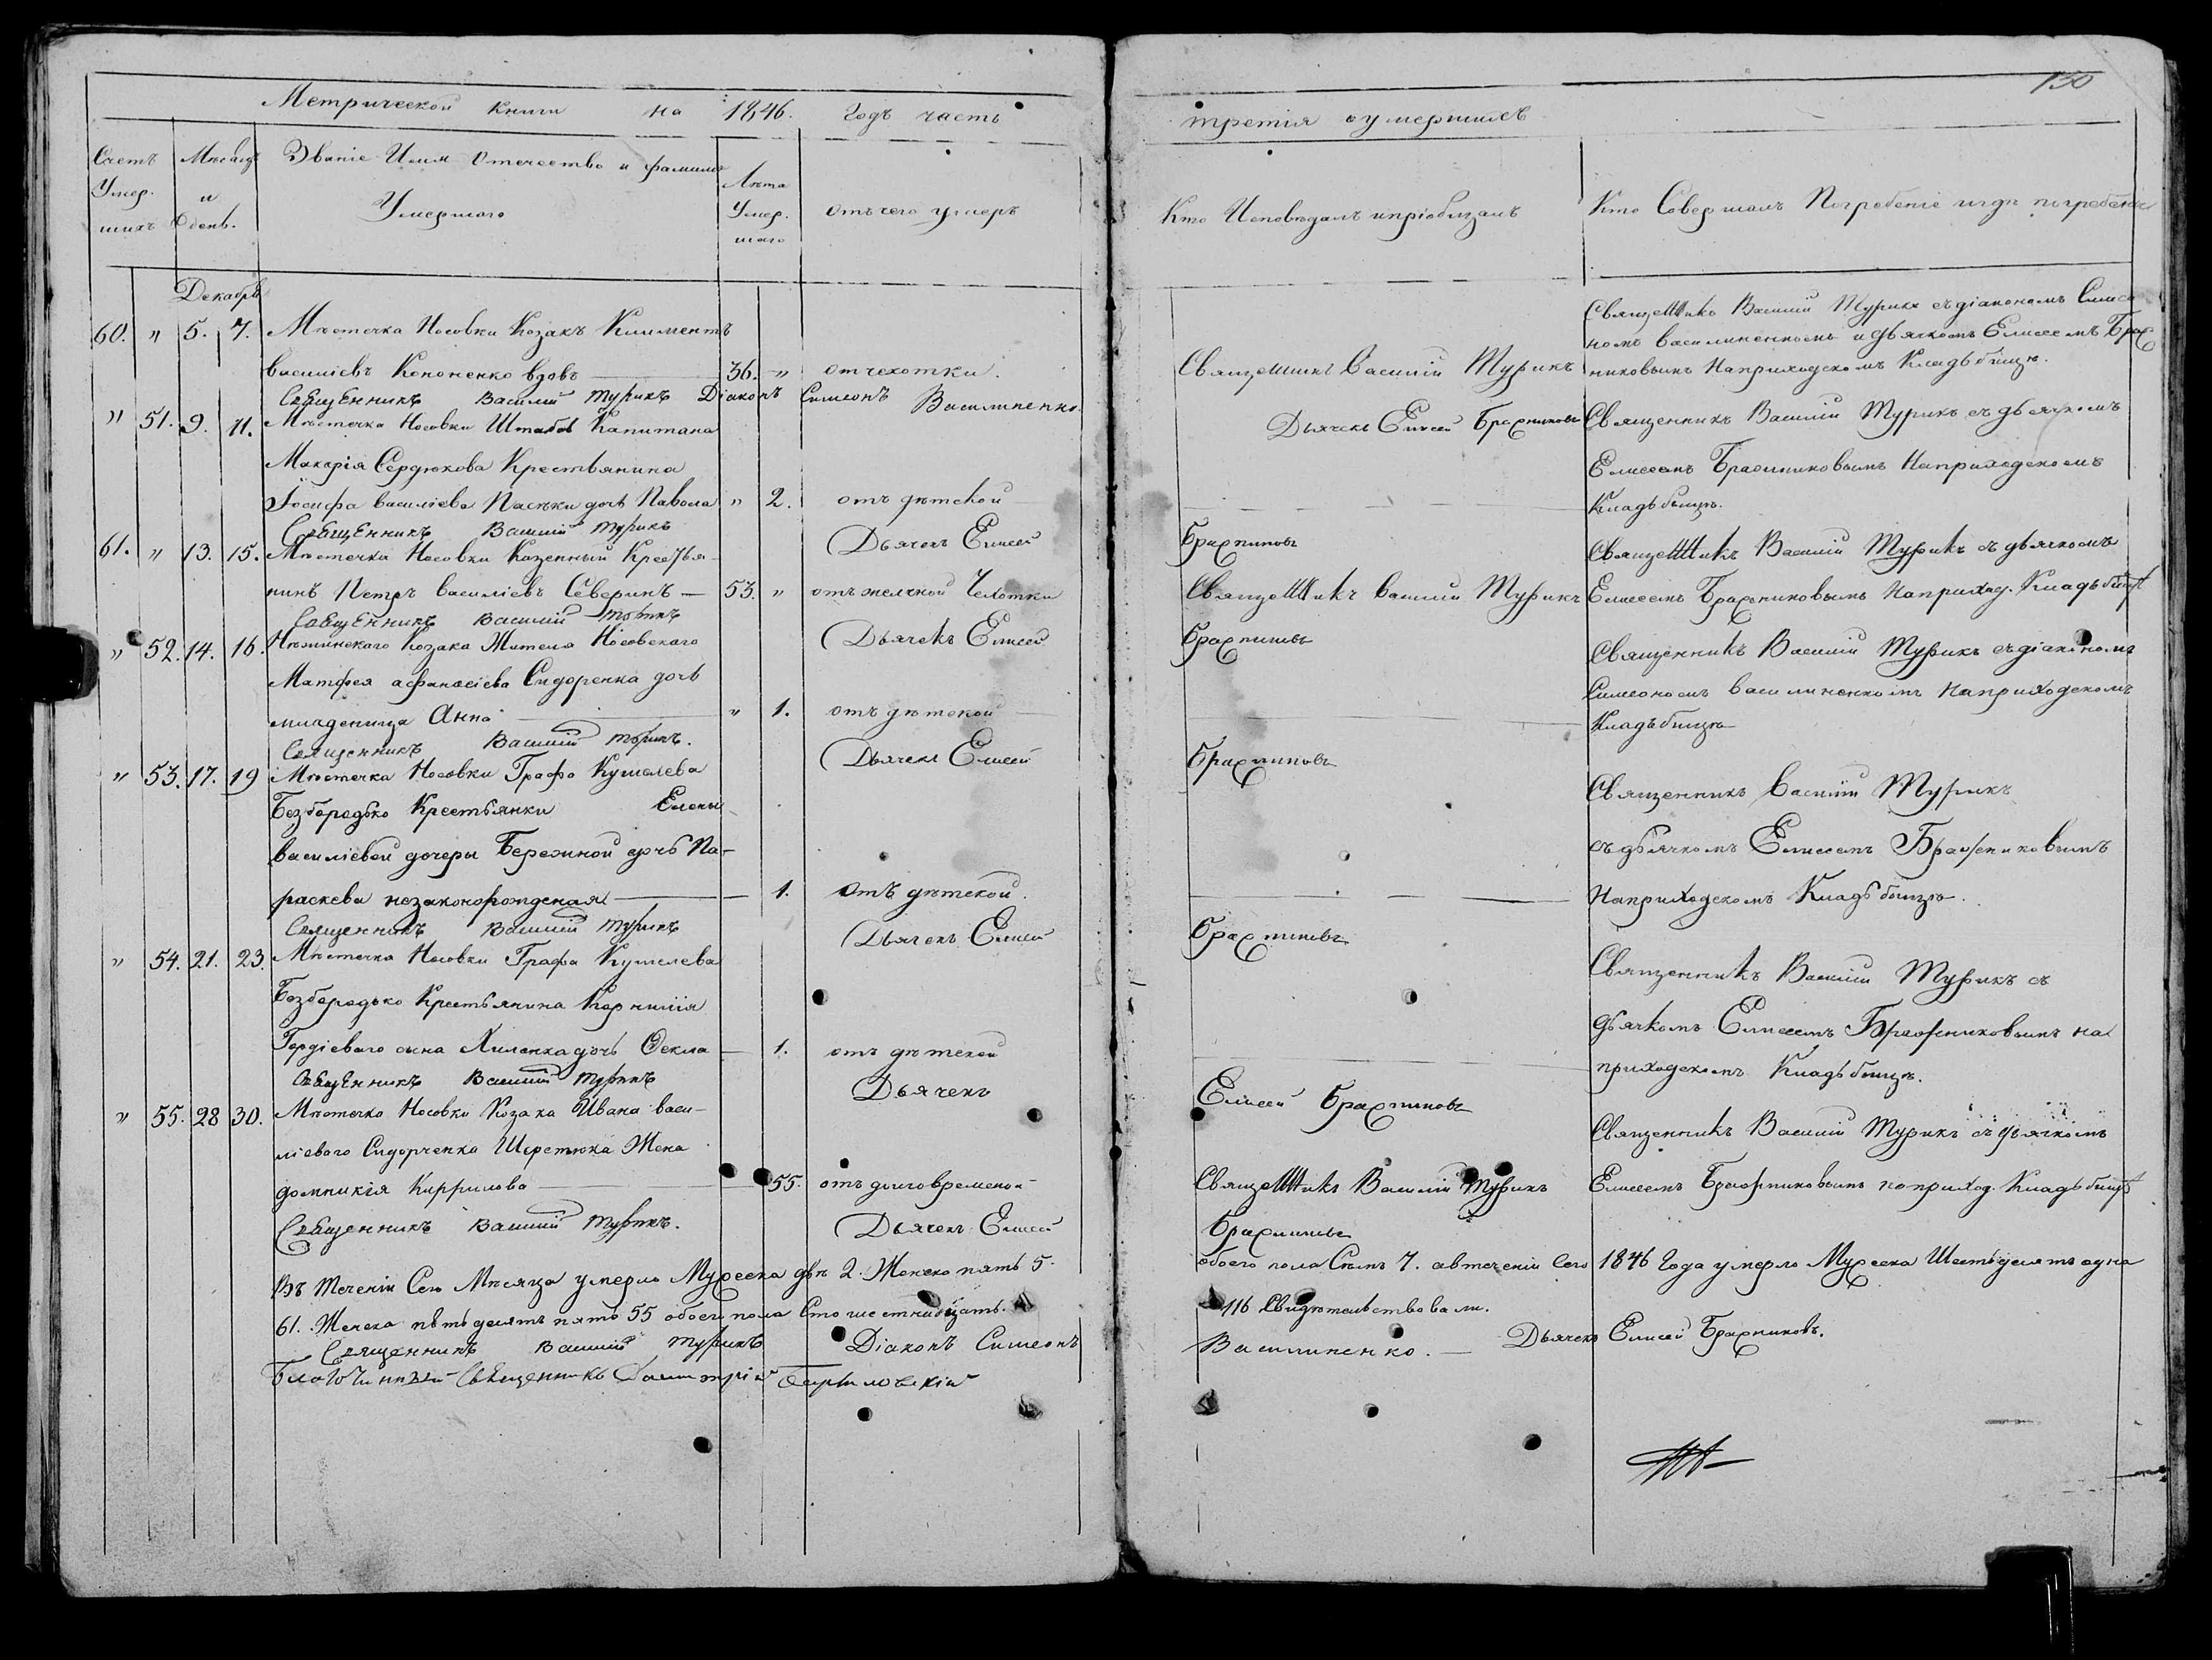 130
Метрической книги на 1846. годъ часть третія о умершихъ
Счетъ Умер. шихъ
Мѣсяцъ и день.
Званіе Имя Отечество и фамилія Умершаго
Лѣта Умер. шаго
отъ чего умеръ
Кто Исповѣдалъ и пріобщалъ
Кто Совершалъ Погребеніе и гдѣ погребены
Декабрь
60. " 5. 7. Мѣстечка Носовки Козакъ Климентъ
василіевъ Кононенко вдовъ 36. " отъ чехотки.
Священникъ Василій Турикъ
Священникъ Василій Турикъ съ діакономъ Симео
номъ василиненкомъ и дьячкомъ Елисеемъ Браж
никовымъ На приходскомъ Кладьбищѣ.
Священникъ Василий Турикъ Діаконъ Симеонъ Василиненко.
Дьячекъ Елисей Бражниковъ
" 51. 9. 11. Мѣстечка Носовки Штабсъ Капитана
Макарія Сердюкова Крестьянина
Іосифа василіева Пасѣки дочь Павола " 2. отъ дѣтской
Священникъ Василій Турикъ съ дьячкомъ
Елисеемъ Бражниковымъ На приходскомъ
Кладьбищѣ.
Священникъ Василій Турикъ Дьячекъ Елисей Бражниковъ
61. " 13. 15. Мѣстечка Носовки Казенный Крестья-
нинъ Петръ василіевъ Северинъ 53. " отъ желчной Чехотки
Священникъ Василій Турикъ
Священникъ Василій Турикъ съ дьячкомъ
Елисеемъ Бражниковымъ На приход. Кладьбищѣ
Священникъ Василий Турикъ Дьячекъ Елисей Бражниковъ
" 52. 14. 16. Нѣжинскаго Козака Жителя Носовскаго
Матфея афанасіева Сидоренка дочь
младеница Анна " 1. отъ дѣтской
Священникъ Василій Турикъ съ діакономъ
Симеономъ василиненкомъ На приходскомъ
Кладьбищѣ
Священникъ Василий Турикъ. Дьячекъ Елисей Бражниковъ
" 53. 17. 19 Мѣстечка Носовки Графа Кушелева
Безбородько Крестьянки Елены
василіевой дочери Бережной дочь Па-
раскева незаконорожденая 1. отъ дѣтской.
Священникъ Василій Турикъ
съ дьячкомъ Елисеемъ Бражниковымъ
На приходскомъ Кладьбищѣ.
Священникъ Василий Турикъ Дьячекъ Елисей Бражниковъ
" 54. 21. 23. Мѣстечка Носовки Графа Кушелева
Безбородько Крестьянина Корнилія
Гордіеваго сына Хиленка дочь Фекла 1. отъ дѣтской
Священникъ Василій Турикъ съ
дьячкомъ Елисеемъ Бражниковымъ на
приходскомъ Кладьбищѣ.
Священникъ Василий Турикъ Дьячекъ Елисей Бражниковъ
" 55. 28 30. Мѣстечка Носовки Козака Ивана васи-
ліеваго Сидорченка Шеретюка Жена
домникія Киррилова 55. отъ долговременой
Священникъ Василій Турикъ
Священникъ Василій Турикъ съ дьячкомъ
Елисеемъ Бражниковымъ на приход. Кладьбищѣ
Священникъ Василий Турикъ. Дьячекъ Елисей Бражниковъ
Въ теченіи Сего Мѣсяца умерло Мужеска двѣ 2. Женско пять 5. обоего пола Семъ 7. а в теченіи Сего 1846 Года умерло Мужеска Шестьдесятъ одна
61. Женска пятьдесятъ пять 55 обоего пола Сто шестнадцать. 116 Свидѣтельствовали.
Священникъ Василий Турикъ Діаконъ Симеонъ Василиненко. Дьячекъ Елисей Бражниковъ.
Благочинный Священникъ